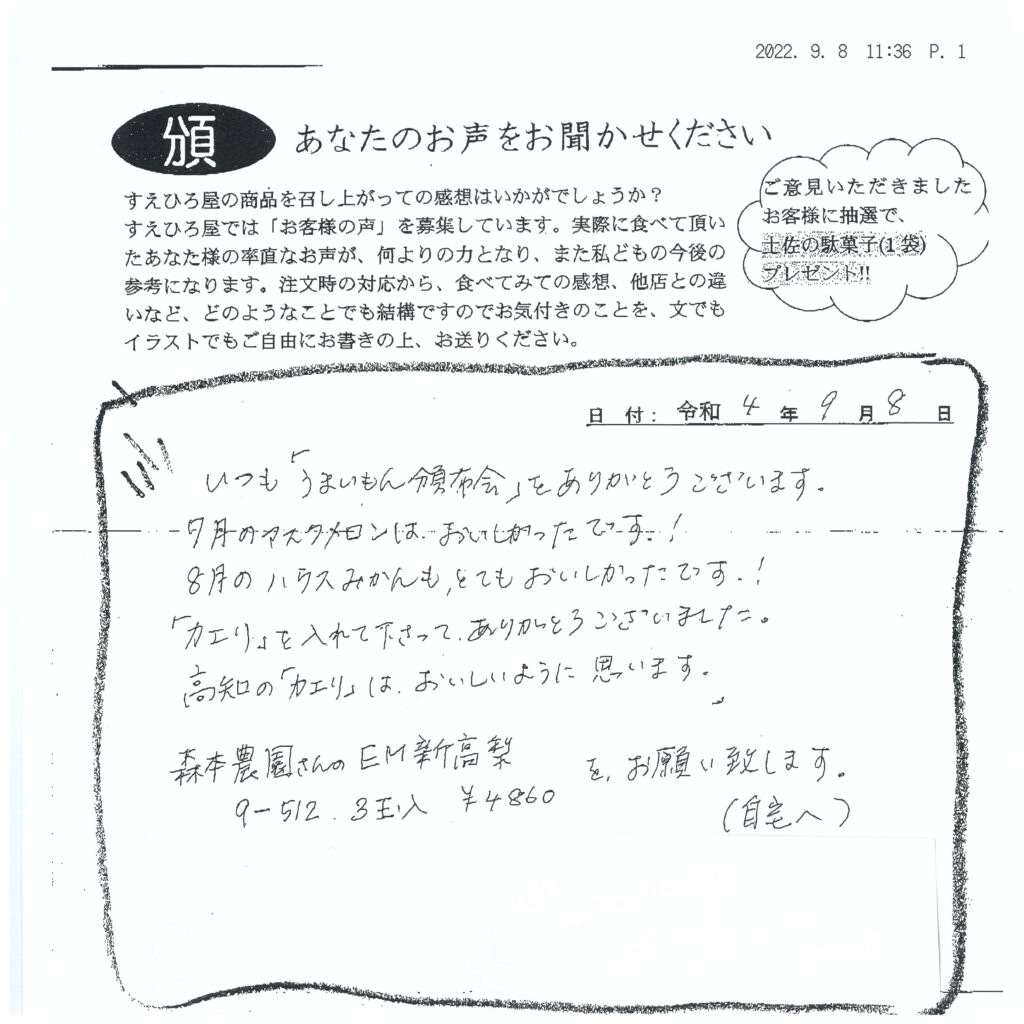 2022. 9. 8 11:36 P. 1
頒 あなたのお声をお聞かせください
すえひろ屋の商品を召し上がっての感想はいかがでしょうか？
すえひろ屋では「お客様の声」を募集しています。実際に食べて頂い
たあなた様の率直なお声が、何よりの力となり、また私どもの今後の
参考になります。注文時の対応から、食べてみての感想、他店との違
いなど、どのようなことでも結構ですのでお気付きのことを、文でも
イラストでもご自由にお書きの上、お送りください。
ご意見いただきました
お客様に抽選で、
土佐の駄菓子(1袋)
プレゼント!!
日 付： 令和 4 年 9 月 8 日
いつも「うまいもん頒布会」をありがとうございます。
7月のマスクメロンは、おいしかったです。！
8月のハウスみかんも、とてもおいしかったです。！
「カエリ」を入れて下さって、ありがとうございました。
高知の「カエリ」は、おいしいように思います。
森本農園さんのEM新高梨 を、お願い致します。
9-512. 3玉入 ¥4860 （自宅へ）